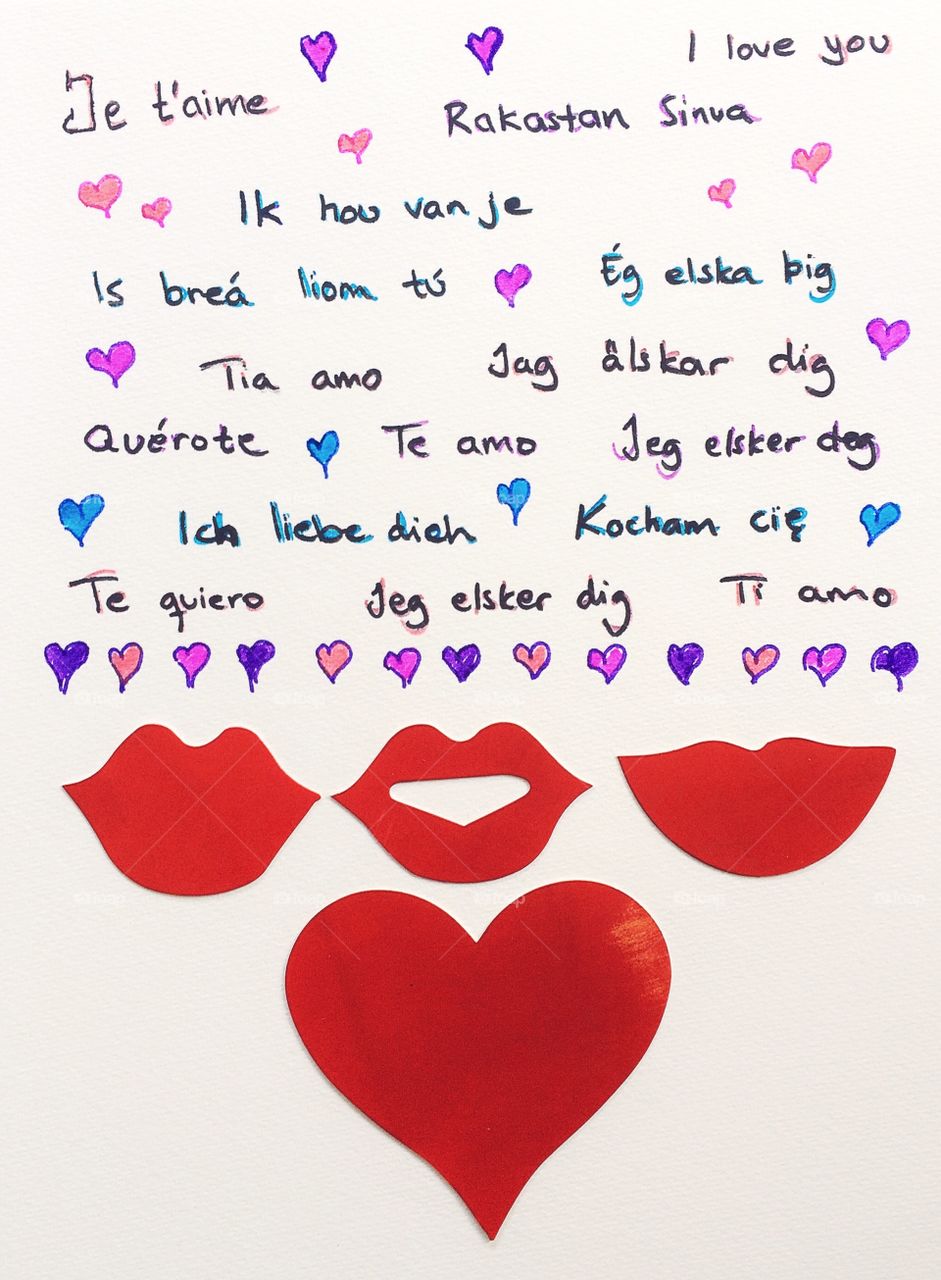 I love you
Je t'aime Rakastan Sinua
Ik hou van je
Is breá liom tú Ég elska þig
Tia amo Jag älskar dig
Quérote Te amo Jeg elsker deg
Ich liebe dich Kocham cię
Te quiero Jeg elsker dig Ti amo